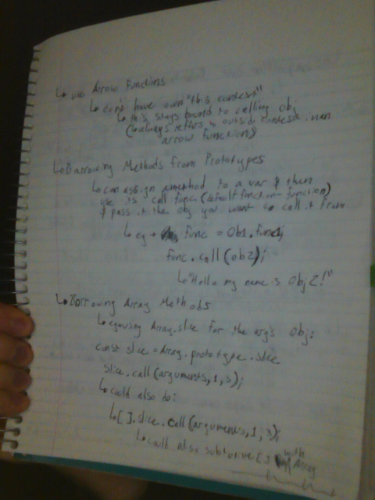 ↳ use Arrow Functions
↳ don't have own "this context"
↳ this stays bound to calling obj
(always refers to outside context when
arrow function)
↳ Borrowing Methods from Prototypes
↳ can assign a method to a var & then
use its call func (default function - function)
& pass it the obj you want to call it from
↳ eg → func = Obj.func;
func.call(ob2);
↳ "Hello my name is Obj2!"
↳ Borrowing Array Methods
↳ eg using Array.slice for the args Obj:
const slice = Array.prototype.slice
slice.call(arguments,1,3);
↳ could also do:
↳ [].slice.call(arguments,1,3)
↳ could also [] with Array